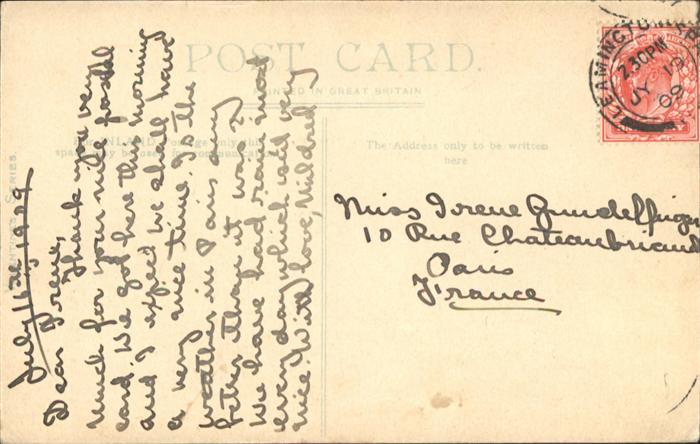 POST CARD.
PRINTED IN GREAT BRITAIN
The Address only to be written
here
SERIES.
LEAMINGTON
2.30PM
JY
09
July 1909
Dear Irene,
Thank you very
much for your nice postal
card. We got here this morning
and I expect we shall have
a very nice time. Is the
weather in Paris any
better than it was,
We have had rain most
every day which isn't very
nice. With love, Mildred
Miss Irene Gundelfinger
10 Rue Chateaubriand
Paris
France